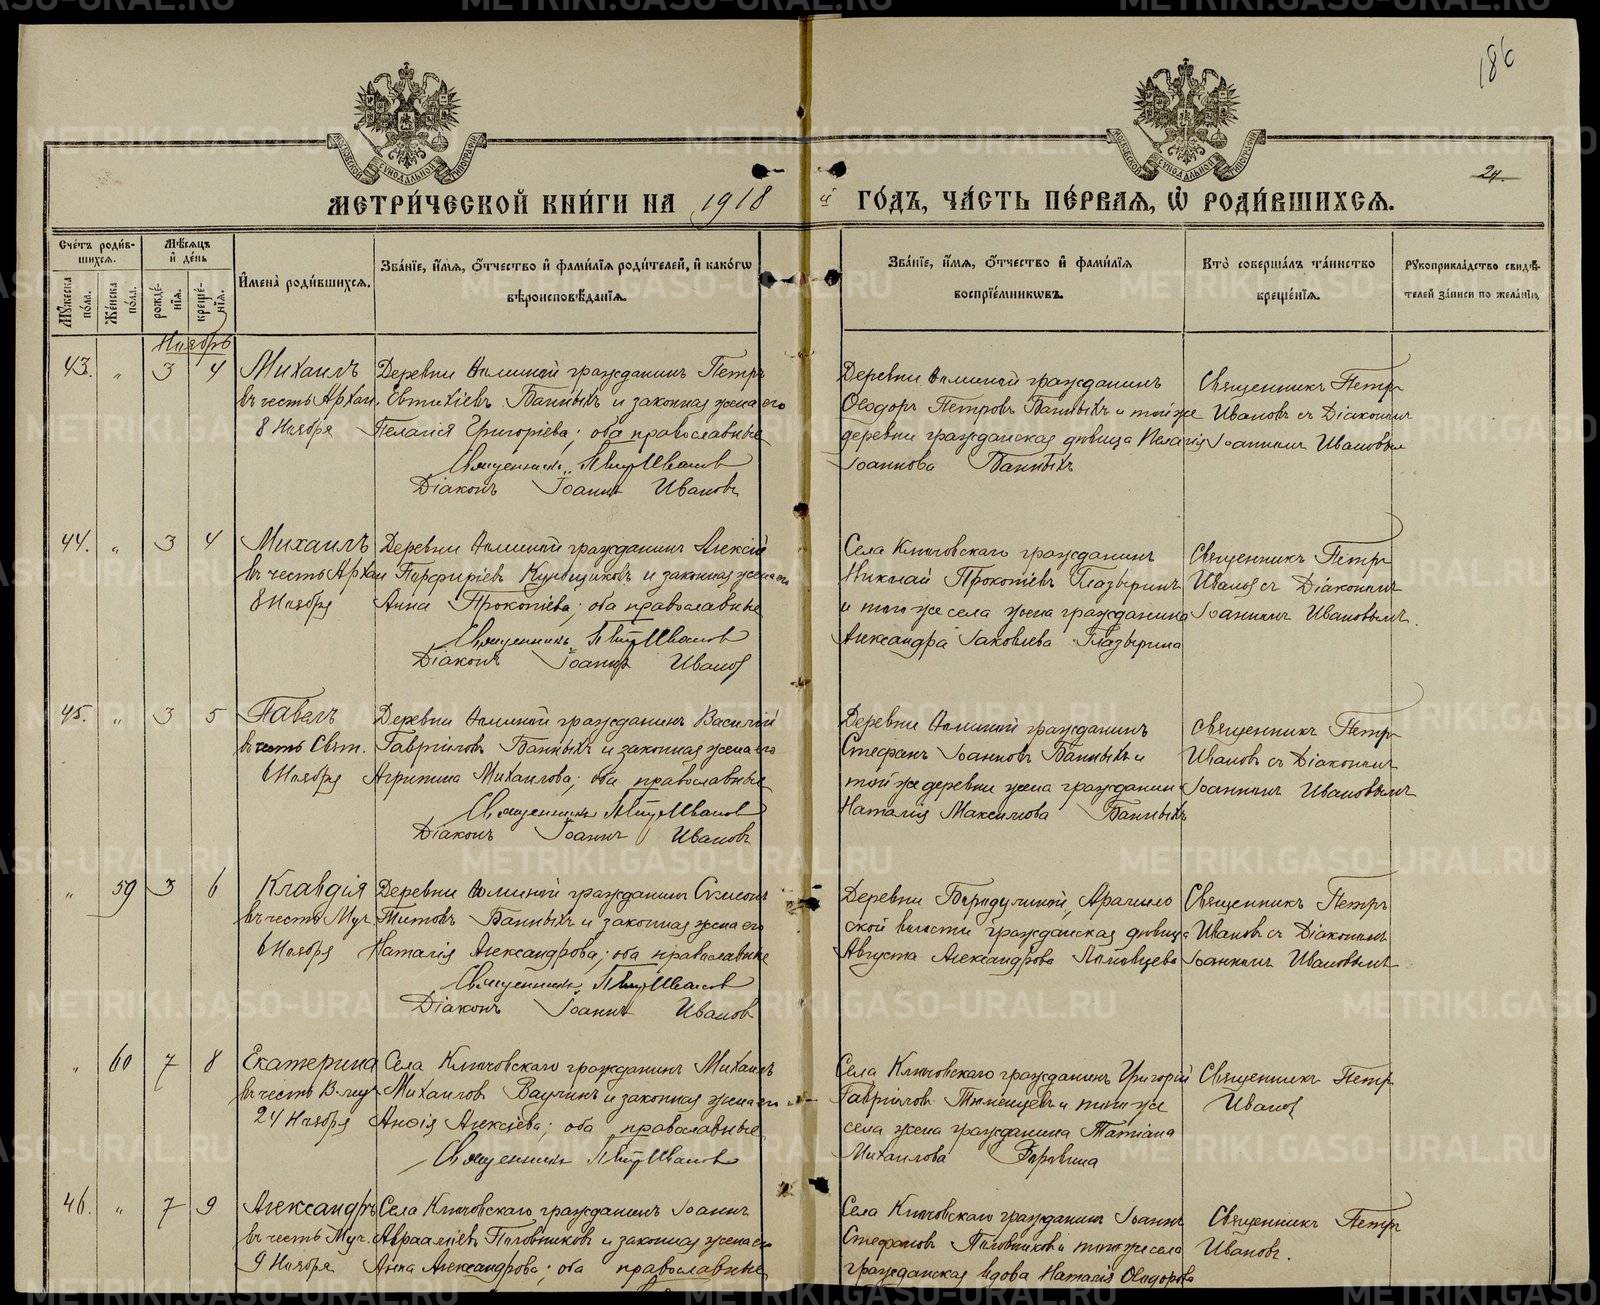 186
24.
МЕТРИ́ЧЕСКОЙ КНИ́ГИ НА 1918 й ГО́ДЪ, ЧА́СТЬ ПЕ́РВАѦ, Ѡ҆ РОДИ́ВШИХСѦ.
Сче́тъ роди́в-
шихсѧ.
Мѣ́сѧцъ
и҆ де́нь
Мꙋ́жеска по́ла.
Же́нска по́ла.
рожде́-
нїѧ.
креще́-
нїѧ.
И҆мена̀ роди́вшихсѧ.
Зва́нїе, и҆́мѧ, ѻ҆́тчество и҆ фами́лїѧ роди́телей, и҆ како́гѡ
вѣроисповѣ́данїѧ.
Зва́нїе, и҆́мѧ, ѻ҆́тчество и҆ фами́лїѧ
воспрїе́мникѡвъ.
Кто̀ соверша́лъ та́инство
креще́нїѧ.
Рꙋкоприкла́дство свидѣ́-
телей за́писи по жела́нїю.
Ноябрь
43. „ 3 4
Михаилъ
въ честь Архан.
8 Ноября
Деревни гражданинъ Петръ
Евтихіевъ Банныхъ и законная жена его
Пелагія Григоріева; оба православные
Священникъ Петръ Ивановъ
Діаконъ Іоаннъ Ивановъ
Деревни гражданинъ
Ѳеодоръ Петровъ Банныхъ и той же
деревни гражданская дѣвица Пелагія
Іоаннова Банныхъ
Священникъ Петръ
Ивановъ съ Діакономъ
Іоанномъ Ивановым
44. „ 3 4
Михаилъ
въ честь Архан
8 Ноября
Деревни гражданинъ Алексій
Порфиріевъ и законная жена его
Анна Прокопіева; оба православные
Священникъ Петръ Ивановъ
Діаконъ Іоаннъ Иванов
Села Ключовскаго гражданинъ
Николай Прокопіевъ Глазыринъ
и того же села жена гражданина
Александра Іаковлева Глазырина
Священникъ Петръ
Иванов съ Діакономъ
Іоанномъ Ивановымъ.
45. „ 3 5
Павелъ
въ честь Свят.
6 Ноября
Деревни гражданинъ Василій
Гавріиловъ Банныхъ и законная жена его
Агрипина Михаилова; оба православные
Священникъ Петръ Ивановъ
Діаконъ Іоаннъ Ивановъ
Деревни гражданинъ
Стефанъ Іоанновъ Банныхъ и
той же деревни жена гражданин
Наталія Максимова Банныхъ
Священникъ Петръ
Ивановъ съ Діакономъ
Іоанномъ Ивановымъ
„ 59 3 6
Клавдія
въ честь Муч.
6 Ноября
Деревни гражданинъ Симеонъ
Титовъ Банныхъ и законная жена его
Наталія Александрова; оба православные
Священникъ Петръ Ивановъ
Діаконъ Іоаннъ Ивановъ
Деревни
волости гражданская дѣвица
Августа Александрова
Священникъ Петръ
Ивановъ съ Діакономъ
Іоанномъ Ивановымъ
„ 60 7 8
Екатерина
въ честь В-муч
24 Ноября
Села Ключовскаго гражданинъ Михаилъ
Михаилов Ваулинъ и законная жена его
Анѳія Алексіева; оба православные
Священникъ Петръ Ивановъ
Села Ключовскаго гражданинъ Григорій
Гавріилов Тюменцевъ и того же
села жена гражданина Татіана
Михаилова
Священникъ Петръ
Иванов
46. „ 7 9
Александръ
въ честь Муч.
9 Ноября
Села Ключовскаго гражданинъ Іоаннъ
Авраамiевъ Половниковъ и законная жена его
Анна Александрова; оба православные
Села Ключовскаго гражданинъ Іоаннъ
Стефановъ Половников и того же села
гражданская вдова Наталія Ѳеодорова
Священникъ Петръ
Ивановъ.
METRIKI.GASO-URAL.RU